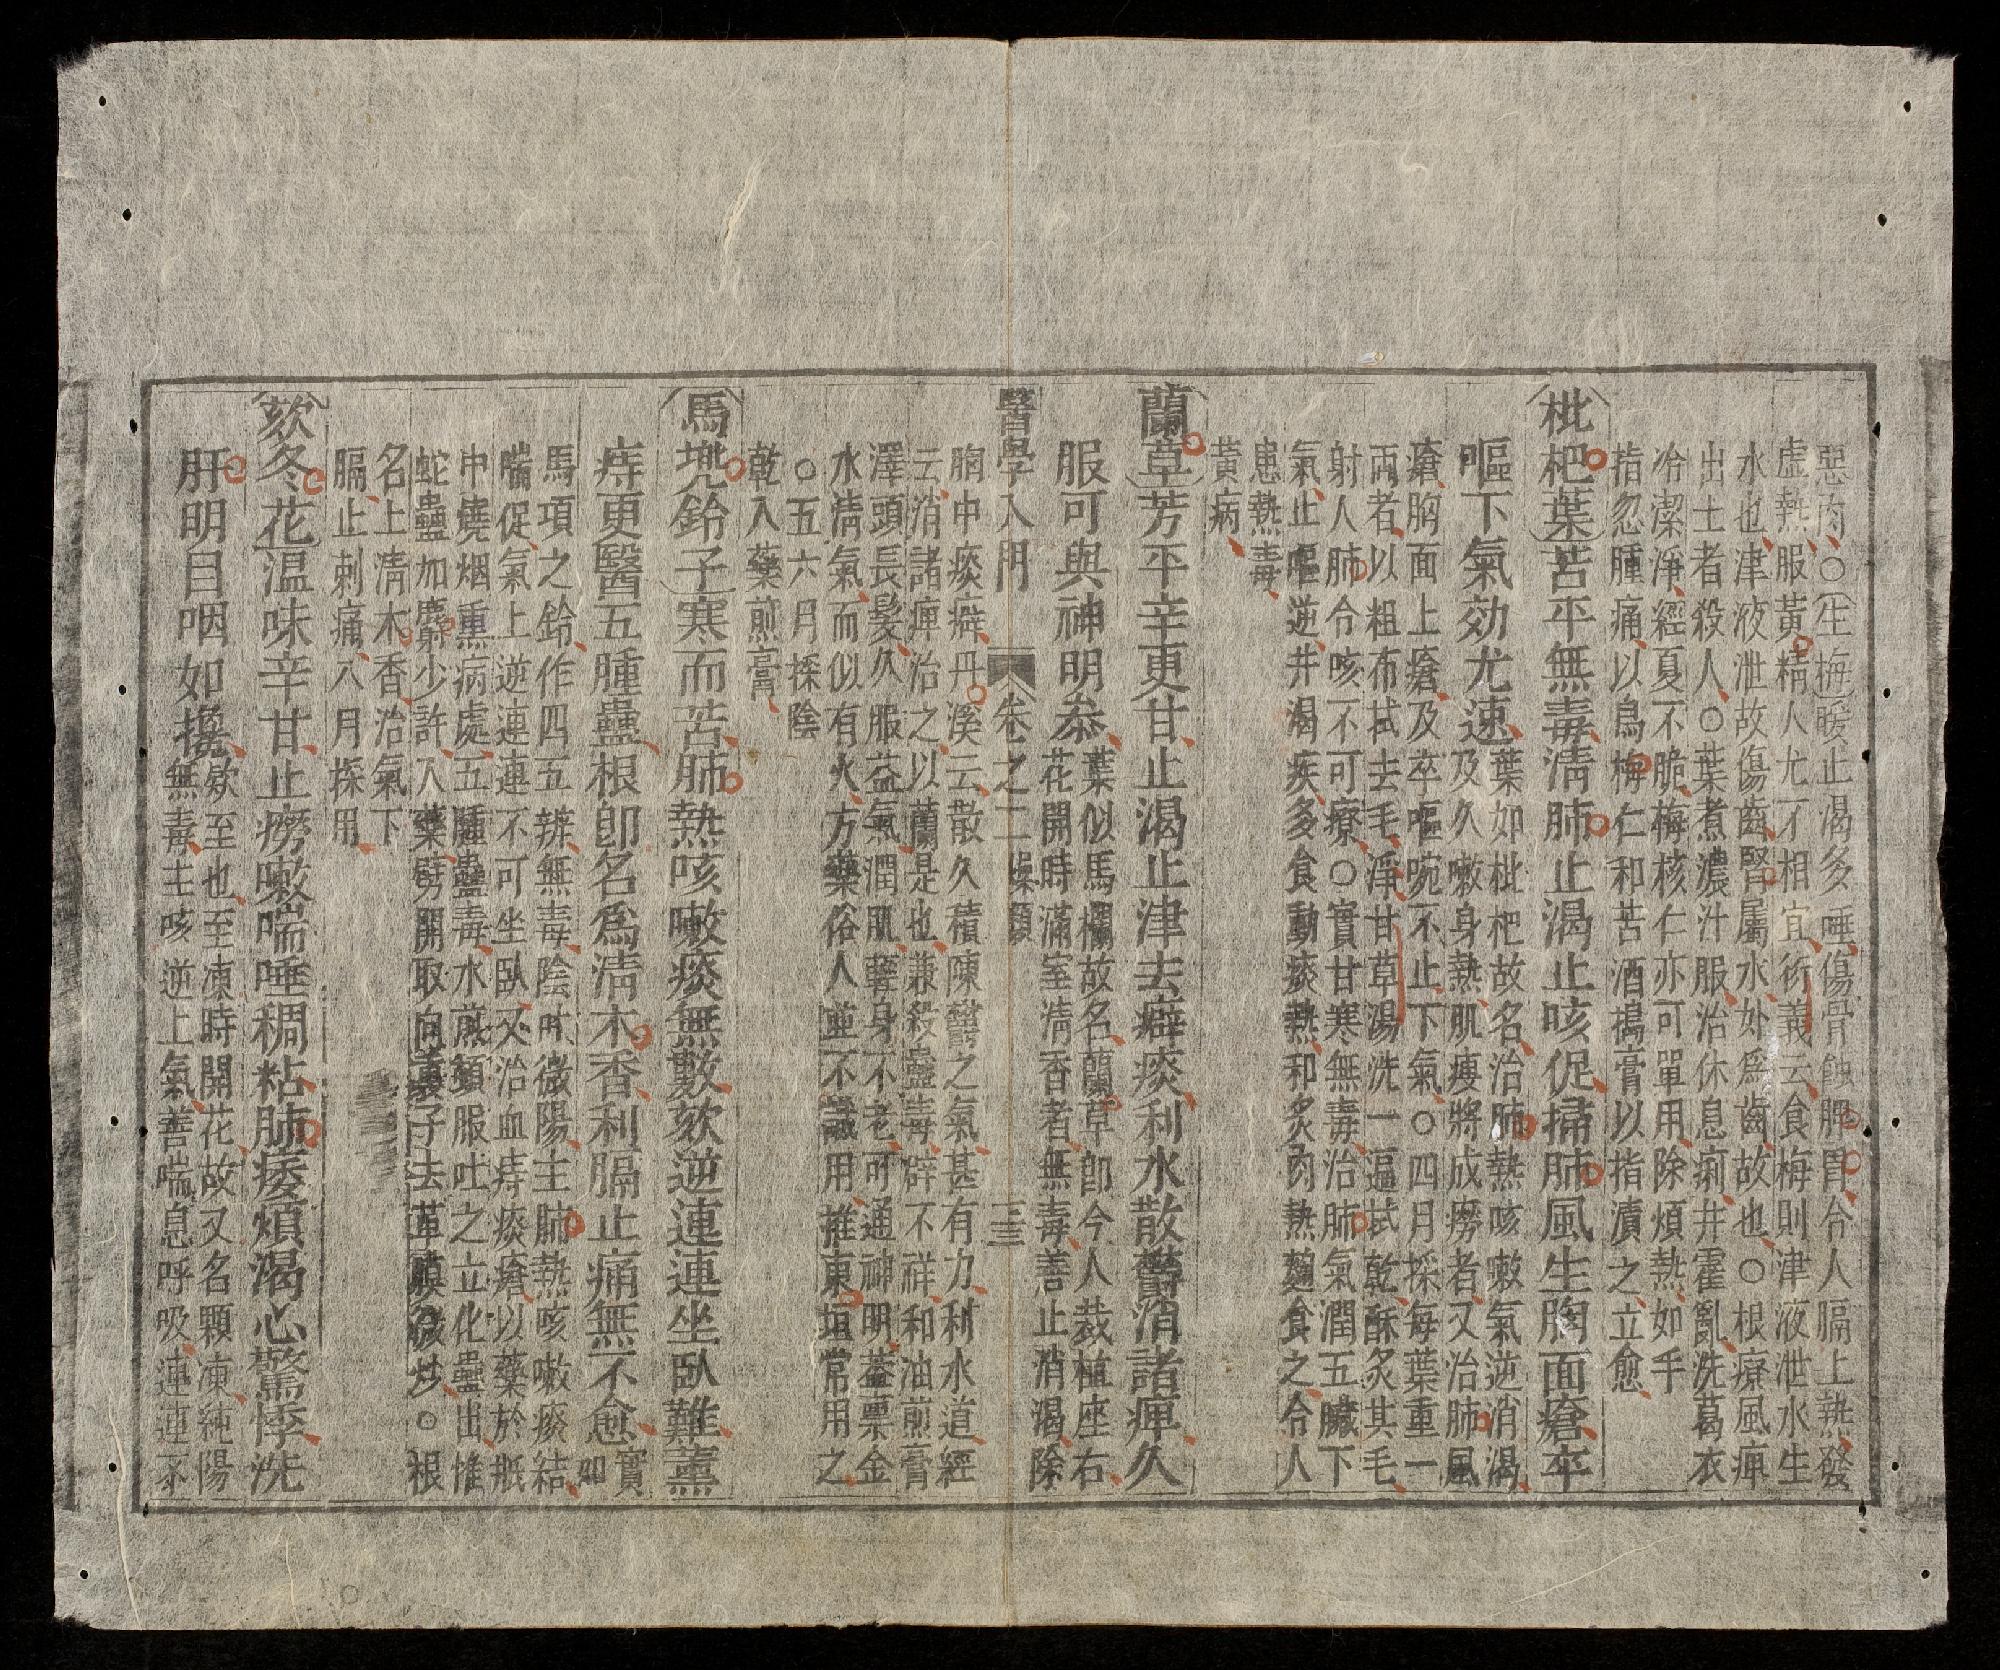 惡肉○生梅暖止渴多唾傷骨蝕脾胃令人膈上熱發
虛熱服黃精人尤不相宜衍義云食梅則津液泄水生
水也津液泄故傷齒腎屬水外爲齒故也○根療風痺
出土者殺人○葉煮濃汁服治休息痢并霍亂洗葛衣
冷潔淨經夏不脆梅核仁亦可單用除煩熱如手
指忽腫痛以烏梅仁和苦酒搗膏以指漬之立愈
枇杷葉苦平無毒淸肺止渴止咳促掃肺風生胸面瘡卒
嘔下氣効尤速葉如枇杷故名治肺熱咳嗽氣逆消渴
及久嗽身熱肌痩將成癆者又治肺風
瘡胸面上瘡及卒嘔啘不止下氣○四月採每葉重一
兩者以粗布拭去毛淨甘草湯洗一遍拭乾酥炙其毛
射人肺令咳不可療○實甘寒無毒治肺氣潤五臟下
氣止嘔逆并渴疾多食動痰熱和炙肉熱麵食之令人
患熱毒
黃病
蘭草芳平辛更甘止渴止津去癖痰利水散鬱消諸痺久
服可與神明叅葉似馬欄故名蘭草卽今人栽植座右
花開時滿室淸香者無毒善止消渴除
醫學入門 卷之二 燥類 二三
胸中痰癖丹溪云散久積陳鬱之氣甚有力利水道經
云消諸痺治之以蘭是也兼殺蠱毒辟不祥和油煎膏
澤頭長髮久服益氣潤肌輕身不老可通神明葢稟金
水淸氣而似有火方藥俗人並不識用推東垣常用之
○五六月採陰
乾入藥煎膏
馬兠鈴子寒而苦肺熱咳嗽痰無數欬逆連連坐臥難薰
痔更醫五腫蠱根卽名爲淸木香利膈止痛無不愈實
如
馬項之鈴作四五辨無毒陰中微陽主肺熱咳嗽痰結
喘促氣上逆連連不可坐臥又治血痔痰瘡以藥於甁
中燒烟熏病處五腫蠱毒水煎頓服吐之立化蠱出惟
蛇蠱加麝少許入藥劈開取向裏子去革膜微炒○根
名上淸木香治氣下
膈止刺痛八月採用
欵冬花温味辛甘止癆嗽喘唾稠粘肺痿煩渴心驚悸洗
肝明目咽如攙欵至也至凍時開花故又名顆凍純陽
無毒主咳逆上氣善喘息呼吸連連不